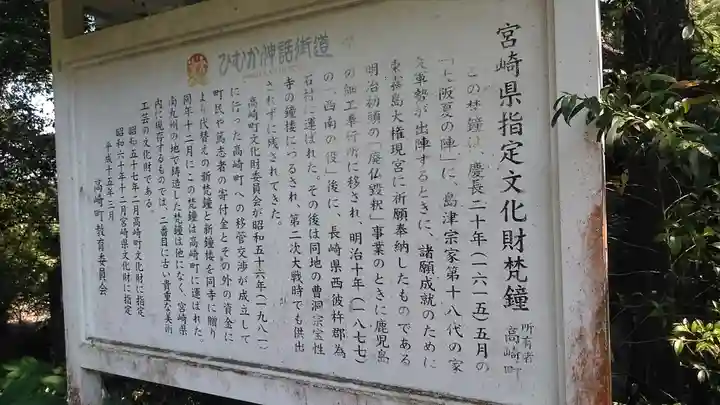 宮崎県指定文化財梵鐘
所有者
高崎町
この梵鐘は、慶長二十年(一六一五)五月の
「大阪夏の陣」に、島津宗家第十八代の家
久軍勢が出陣するときに、諸願成就のために
東霧島大権現宮に祈願奉納したものである
明治初頭の「廃仏毀釈」事業のときに鹿児島
の細工奉行所に移され、明治十年(一八七七)
の「西南の役」後に、長崎県西彼杵郡為
石村に運ばれた。その後は同地の曹洞宗宝性
寺の鐘楼につるされ、第二次大戦時でも供出
されずに残されてきた。
高崎町文化財委員会が昭和五十六年(一九八一)
に行った高崎町への移管交渉が成立して
町民や篤志者の寄付金とその外の資金に
より代替えの新梵鐘と新鐘楼を同寺に贈り
同年十二月にこの梵鐘は高崎町に運ばれた。
南九州の地で鋳造した梵鐘は他になく、宮崎県
内に現存するものでは、二番目に古い貴重な美術
工芸の文化財である。
昭和五十七年二月高崎町文化財に指定
昭和六十年十二月宮崎県文化財に指定
平成十五年二月
高崎町教育委員会
ひむか神話街道